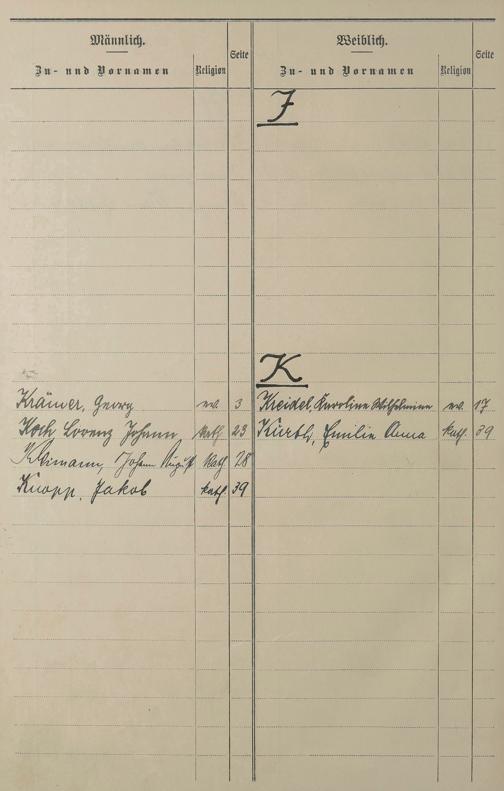 Männlich.
Zu- und Vornamen
Religion
Seite
Weiblich.
Zu- und Vornamen
Religion
Seite
J
K
Krämer, Georg ev. 3
Koch Lorenz Johann kath 23
Johann August kath 28
Knopp, Jakob kath. 39
Kreidel, Karoline Wilhelmine ev. 17
Kurth, Emilie Anna kath. 39